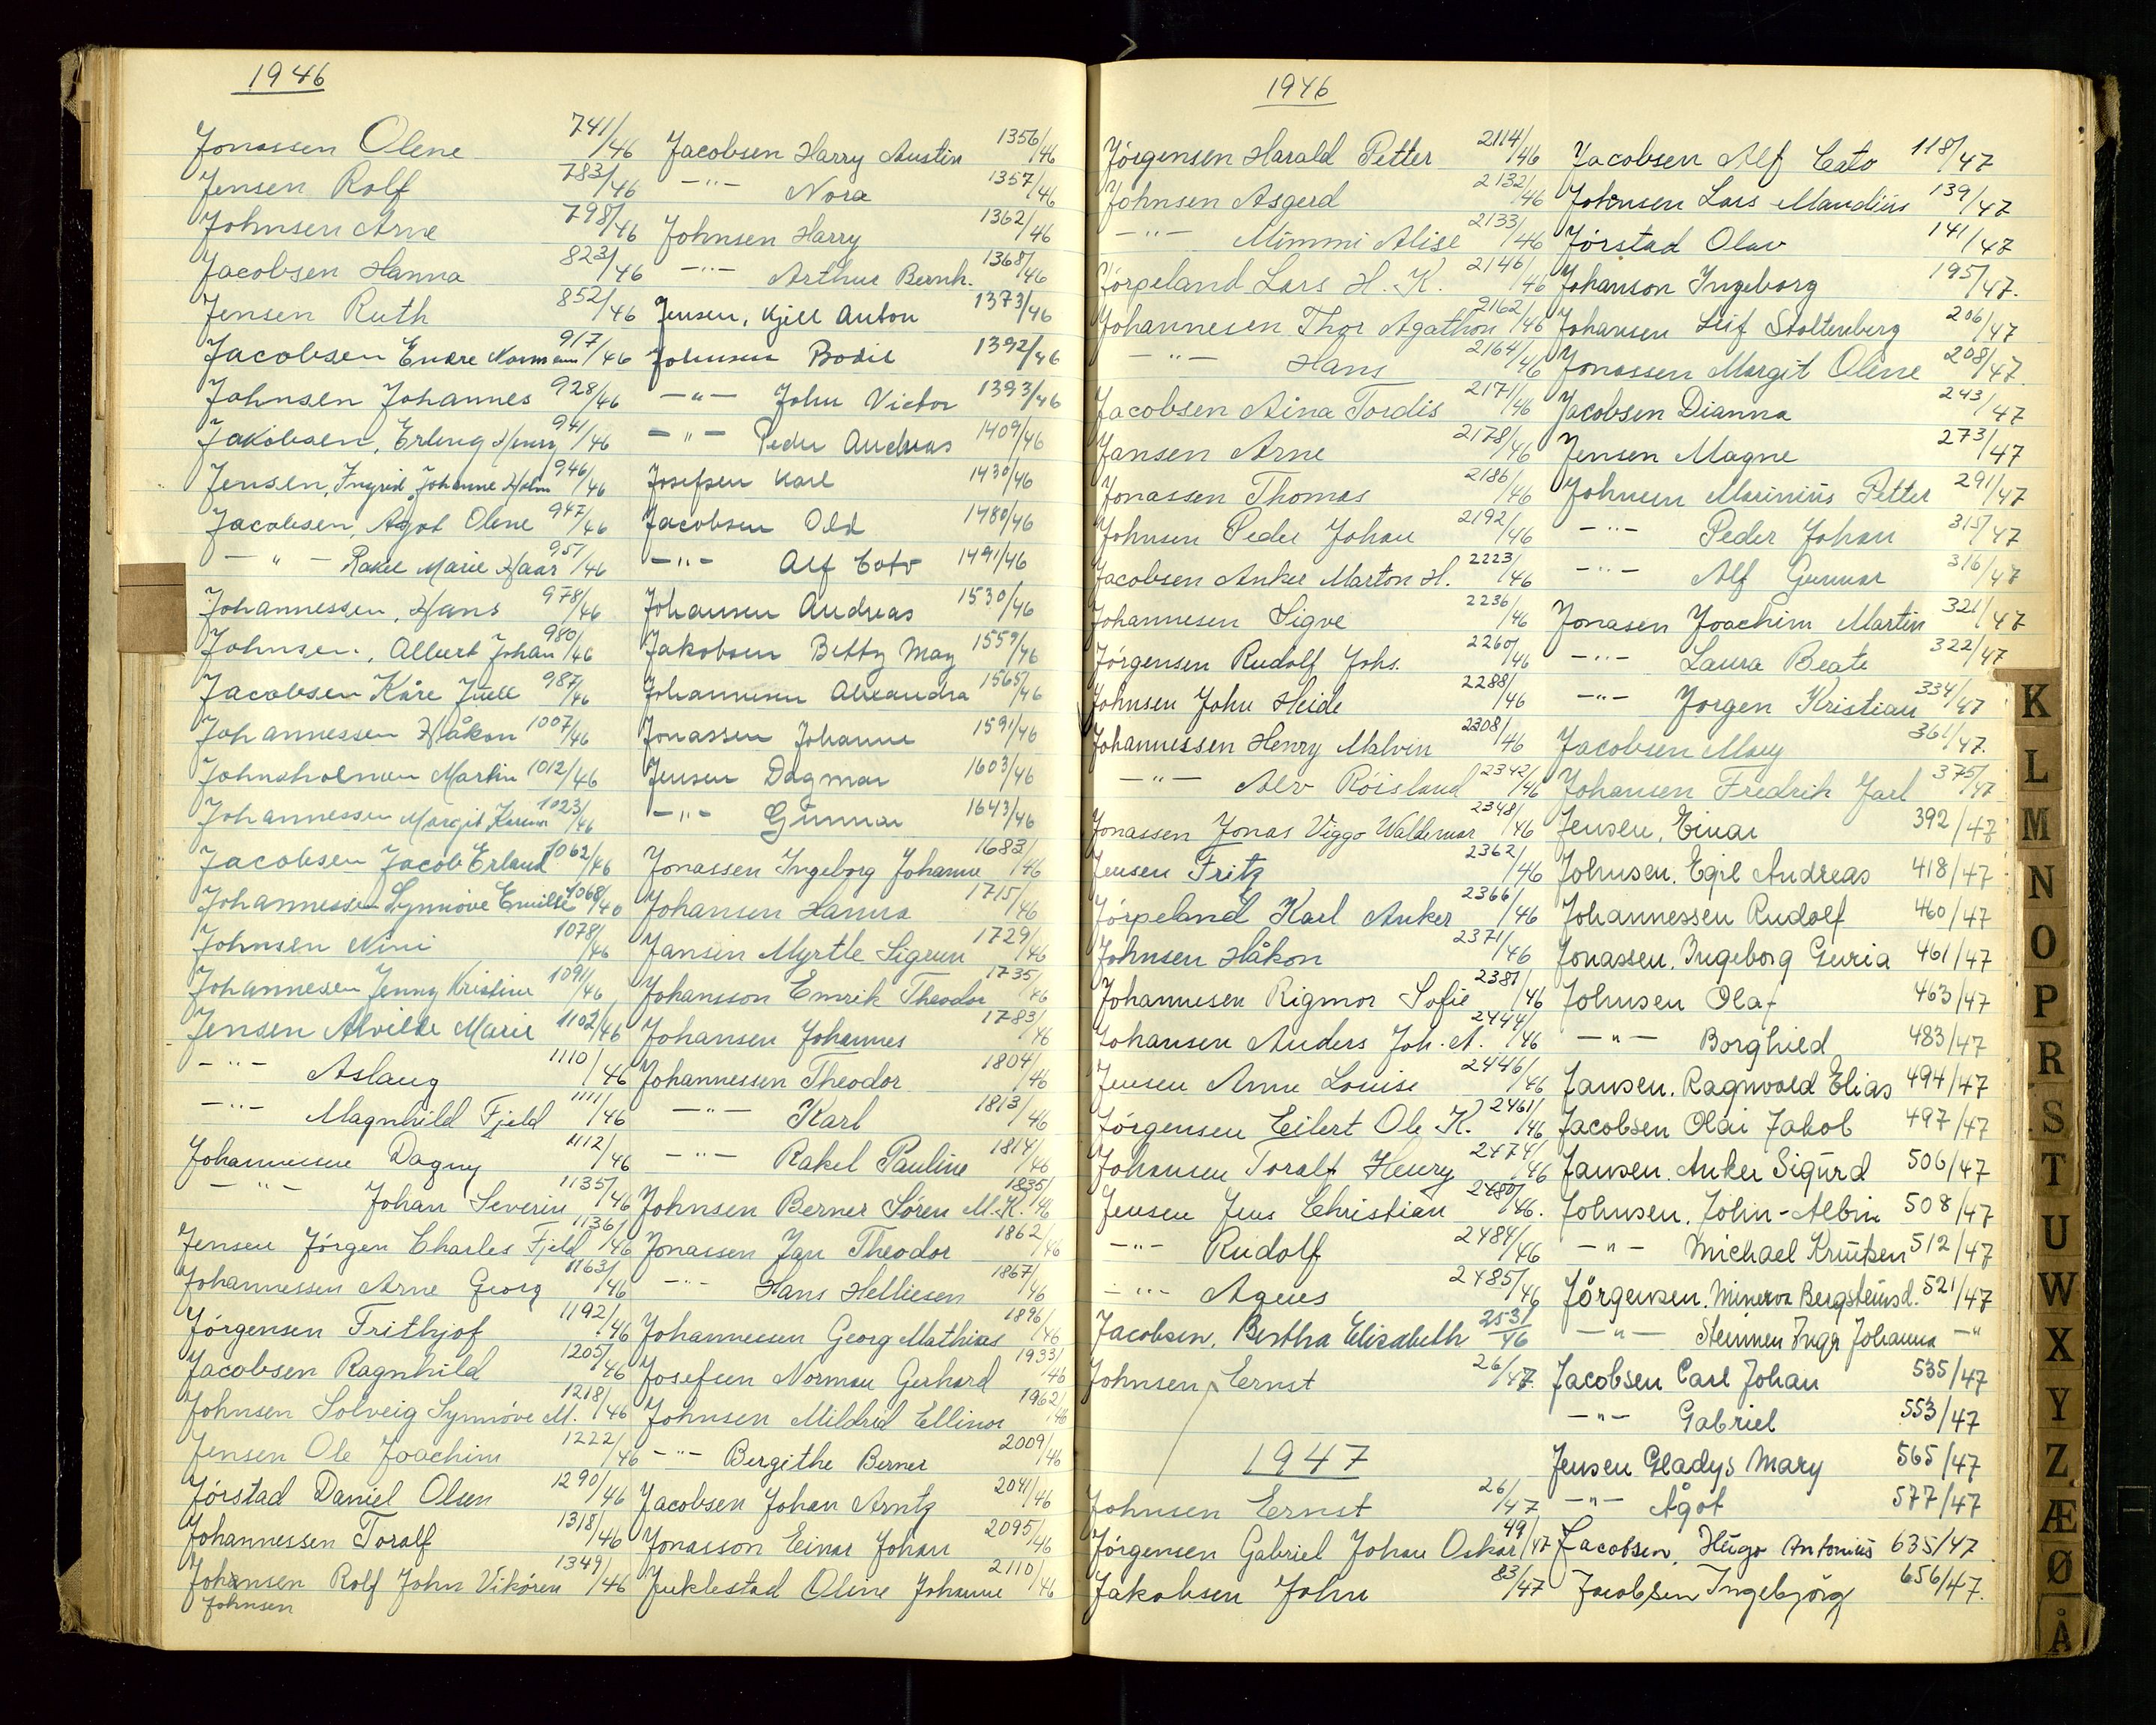 1946
Jonassen Olene 741/46
Jensen Rolf 783/46
Johnsen Arne 798/46
Jacobsen Hanna 823/46
Jensen Ruth 852/46
Jacobsen Endre Normann 917/46
Johnsen Johannes 928/46
Jakobsen, Erling Henry 941/46
Jensen, Ingrid Johanne Holm 946/46
Jacobsen, Ågot Olene 947/46
-"- Rakel Marie Haar 957/46
Johannessen, Hans 978/46
Johnsen, Albert Johan 980/46
Jacobsen Kåre Juell 987/46
Johannessen Håkon 1007/46
Johnsholmen Martin 1012/46
Johannessen Margit Karina 1023/46
Jacobsen Jacob Erland 1062/46
Johannessen Synnöve Emilie 1068/46
Johnsen Nini 1078/46
Johannesen Jenny Kristine 1091/46
Jensen Alvilde Marie 1102/46
-"- Aslaug 1110/46
-"- Magnhild Fjeld 1111/46
Johannessen Dagny 1112/46
-"- Johan Severin 1135/46
Jensen Jörgen Charles Fjeld 1136/46
Johannessen Arne Georg 1163/46
Jörgensen Frithjof 1192/46
Jacobsen Ragnhild 1205/46
Johnsen Solveig Synnöve M. 1218/46
Jensen Ole Joachim 1222/46
Jörstad Daniel Olsen 1290/46
Johannessen Toralf 1318/46
Johansen Rolf John Vikören 1349/46
Johnsen
Jacobsen Harry Austin 1356/46
-"- Nora 1357/46
Johnsen Harry 1362/46
-"- Arthur Bernh. 1368/46
Jensen, Kjell Anton 1373/46
Johnsen Bodil 1392/46
-"- John Victor 1393/46
-"- Peder Andreas 1409/46
Josefsen Karl 1430/46
Jacobsen Odd 1480/46
-"- Alf Cato 1491/46
Johansen Andreas 1530/46
Jakobsen Betty May 1559/46
Johannesen Alexandra 1565/46
Jonassen Johanne 1591/46
Jensen Dagmar 1603/46
-"- Gunnar 1643/46
Jonassen Ingeborg Johanne 1683/46
Johansen Hanna 1715/46
Jansen Myrtle Sigrun 1729/46
Johansson Emrik Theodor 1735/46
Johansen Johannes 1783/46
Johannessen Theodor 1804/46
-"- Karl 1813/46
-"- Rakel Pauline 1814/46
Johnsen Berner Sören M.K. 1835/46
Jonassen Jan Theodor 1862/46
-"- Hans Helliesen 1867/46
Johannessen Georg Mathias 1896/46
Josefsen Norman Gerhard 1933/46
Johnsen Mildrid Ellinor 1962/46
-"- Bergithe Berner 2009/46
Jacobsen Johan Arntz 2041/46
Jonasson Einar Johan 2095/46
Juklestad Oline Johanne 2110/46
1946
Jörgensen Harald Petter 2114/46
Johnsen Asgerd 2132/46
-"- Mimmi Alise 2133/46
Jörpeland Lars H. K. 2146/46
Johannesen Thor Agathon 2162/46
-"- Hans 2164/46
Jacobsen Aina Tordis 2171/46
Jansen Arne 2178/46
Jonassen Thomas 2186/46
Johnsen Peder Johan 2192/46
Jacobsen Anker Marton H. 2223/46
Johannesen Sigve 2236/46
Jörgensen Rudolf Johs. 2260/46
Johnsen John Heide 2288/46
Johannessen Henry Malvin 2308/46
-"- Alv Röisland 2342/46
Jonassen Jonas Viggo Waldemar 2348/46
Jensen Fritz 2362/46
Jörpeland Karl Anker 2366/46
Johnsen Håkon 2371/46
Johannesen Rigmor Sofie 2381/46
Johansen Anders Joh. A. 2444/46
Jensen Anne Louise 2446/46
Jörgensen Eilert Ole K. 2461/46
Johansen Toralf Henry 2474/46
Jensen Jens Christian 2480/46.
-"- Rudolf 2484/46
-"- Agnes 2485/46
Jacobsen, Bertha Elisabeth 2531/46
Johnsen, Ernst 26/47.
1947
Johnsen Ernst 26/47
Jörgensen Gabriel Johan Oskar 49/47
Jakobsen John 83/47
Jacobsen Alf Cato 118/47
Johnsen Lars Mandius 139/47
Jörstad Olav 141/47
Johanson Ingeborg 195/47.
Johansen Leif Stoltenberg 206/47
Jonassen Margit Oline 208/47.
Jacobsen Dianna 243/47
Jensen Magne 273/47
Johnsen Marinius Petter 291/47
-"- Peder Johan 315/47
-"- Alf Gunnar 316/47
Jonasen Joachim Martin 321/47
-"- Laura Beate 322/47
-"- Jorgen Kristian 334/47
Jacobsen May 361/47.
Johansen Fredrik Jarl 375/47
Jensen, Einar 392/47
Johnsen. Egil Andreas 418/47
Johannessen Rudolf 460/47
Jonassen. Ingeborg Guria 461/47
Johnsen Olaf 463/47
-"- Borghild 483/47
Jansen. Ragnvald Elias 494/47
Jacobsen Olai Jakob 497/47
Jansen. Anker Sigurd 506/47
Johnsen. John-Albin 508/47
-"- Michael Knutsen 512/47
Jörgensen. Minerva Bergsteinsd. 521/47
-"- Steinnen Inga Johanna -"-
Jacobsen Carl Johan 535/47
-"- Gabriel 553/47
Jensen Gladys Mary 565/47
-"- Ågot 577/47
Jacobsen, Hugo Antonius 635/47
Jacobsen Ingebjörg 656/47.
K
L
M
N
O
P
R
S
T
U
W
X
Y
Z
Æ
Ø
Å